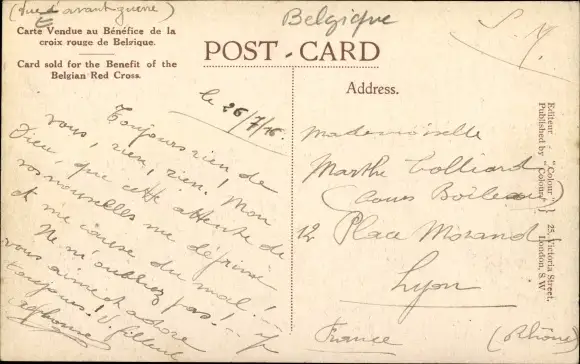 (Vue d'avant guerre)
Belgique
Carte Vendue au Bénéfice de la
croix rouge de Belgique.
Card sold for the Benefit of the
Belgian Red Cross.
POST-CARD
le 26/7/16.
Toujours rien de
vous, rien, rien! Mon
Dieu, que cette attente de
vos nouvelles me déprime
et me cause du mal!
Ne m'oubliez pas!
vous aime et adore
toujours.
Alphonse
Address.
Mademoiselle
Marthe Colliard
(Cours Boileau)
12 Place Morand
Lyon
France (Rhône)
Editeur "Colour" 25, Victoria Street,
Published by "Colour" London, S.W